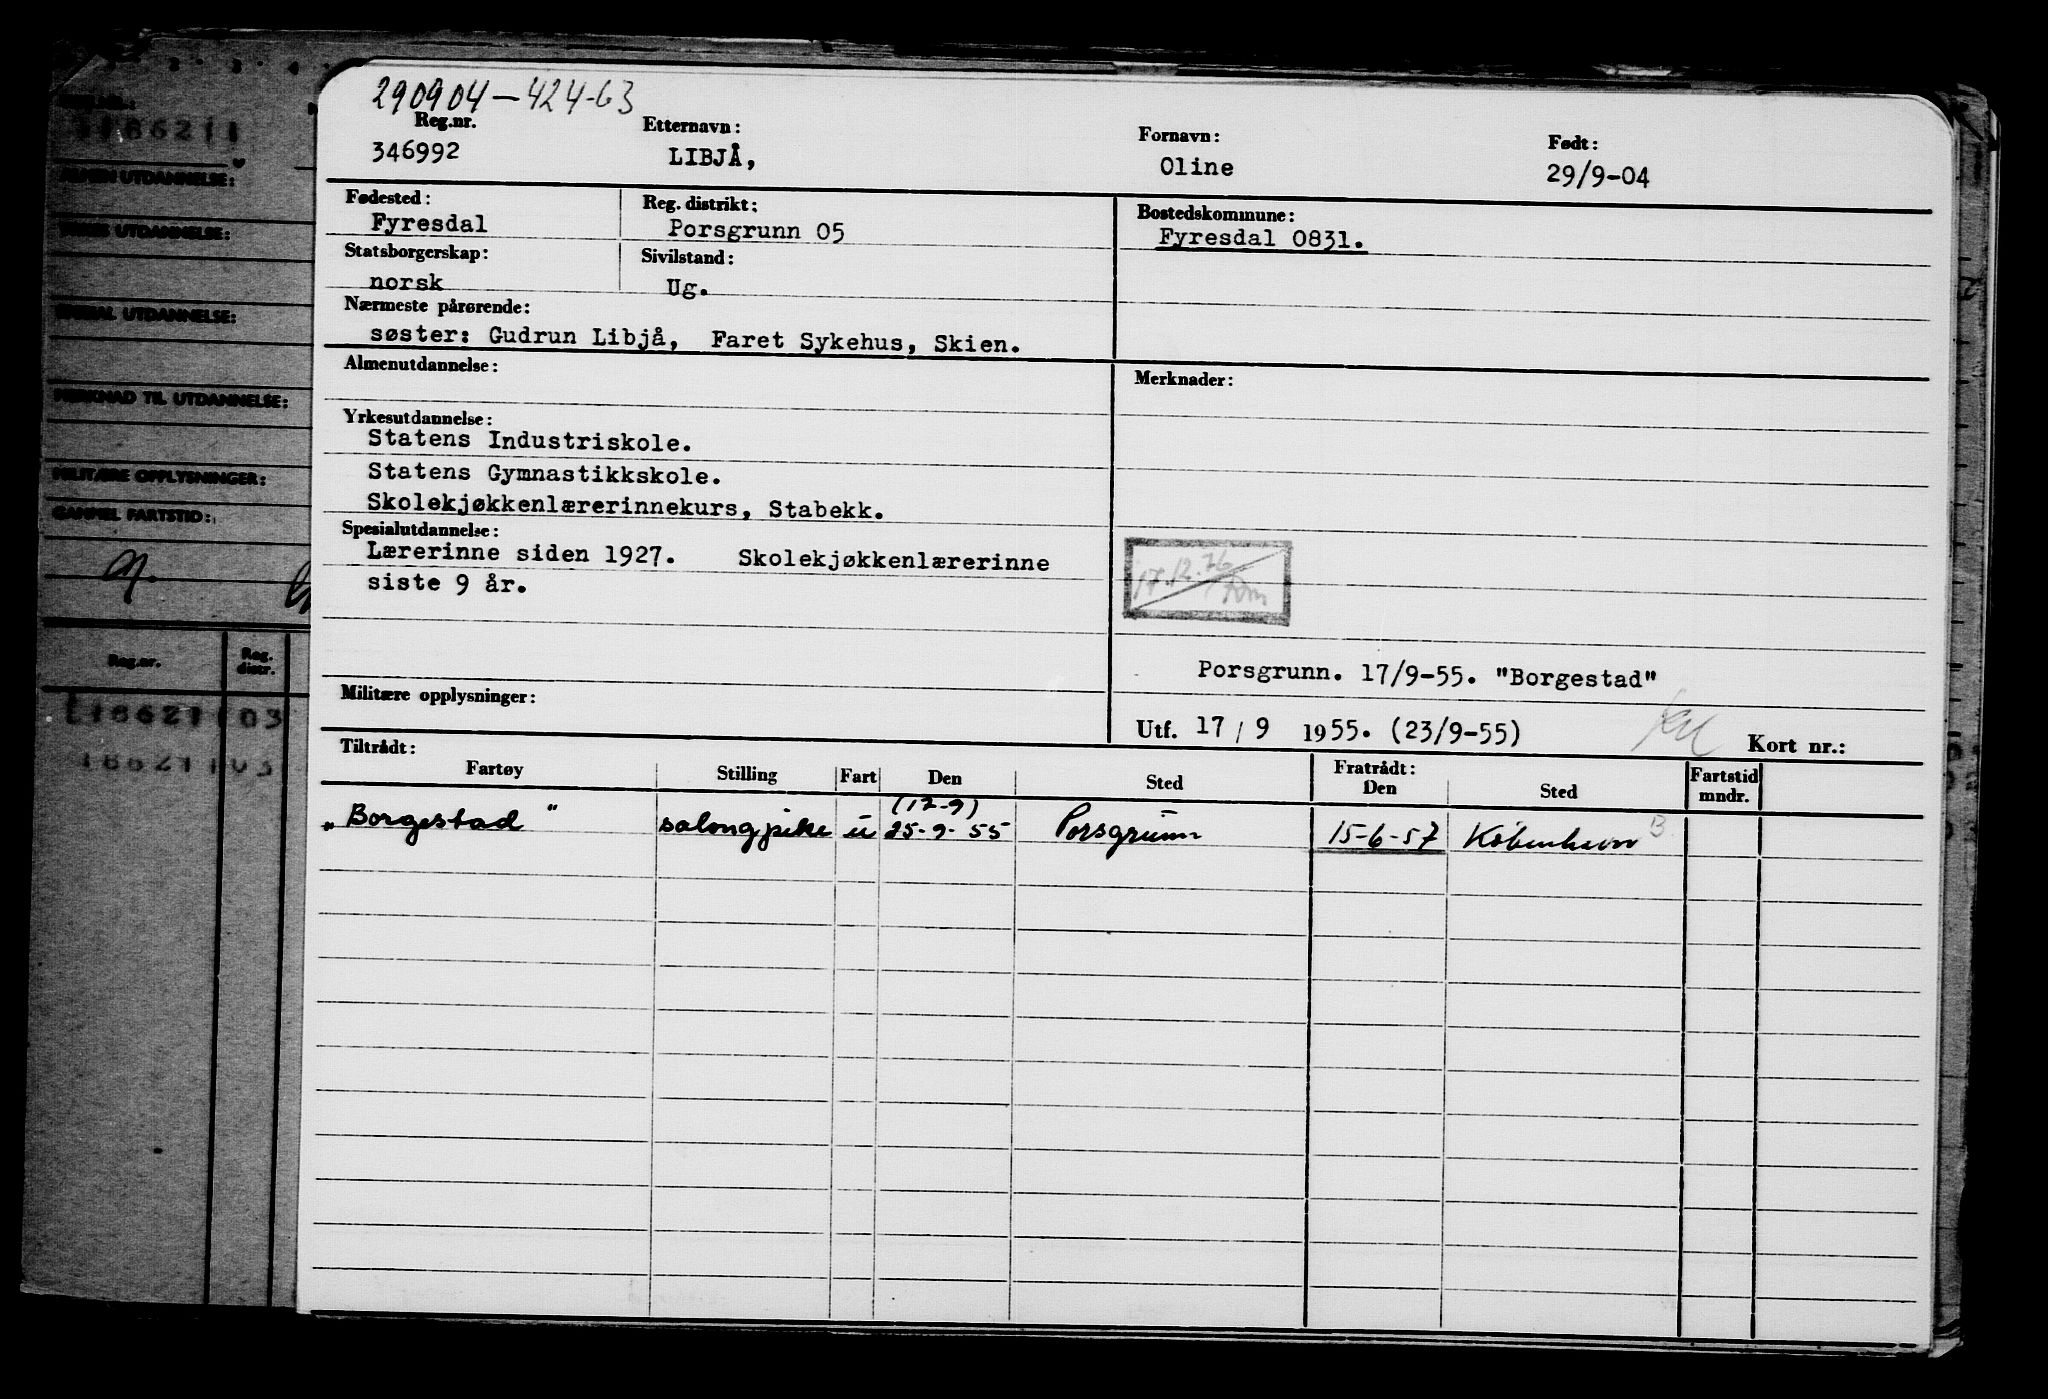 290904-424-63
Reg.nr. Etternavn: Fornavn: Født:
346992 LIBJÅ, Oline 29/9-04
Fødested: Reg. distrikt: Bostedskommune:
Fyresdal Porsgrunn 05 Fyresdal 0831.
Statsborgerskap: Sivilstand:
norsk Ug.
Nærmeste pårørende:
søster: Gudrun Libjå, Faret Sykehus, Skien.
Almenutdannelse: Merknader:
Yrkesutdannelse:
Statens Industriskole.
Statens Gymnastikkskole.
Skolekjøkkenlærerinnekurs, Stabekk.
Spesialutdannelse:
Lærerinne siden 1927. Skolekjøkkenlærerinne
siste 9 år.
17.12.76
Porsgrunn. 17/9-55. "Borgestad"
Militære opplysninger:
Utf. 17 / 9 1955. (23/9-55) Kort nr.:
Tiltrådt: Fratrådt: Fartstid
Fartøy Stilling Fart Den Sted Den Sted mndr.
(12-9)
„Borgestad" salongpike u 25-9-55 Porsgrunn 15-6-57 København B.
186211
ALMEN UTDANNELSE:
YRKES UTDANNELSE:
SPESIAL UTDANNELSE:
MERKNAD TIL UTDANNELSE:
MILITÆRE OPPLYSNINGER:
GAMMEL FARTSTID:
Reg.nr. Reg. distr.
186211 03
186211 03